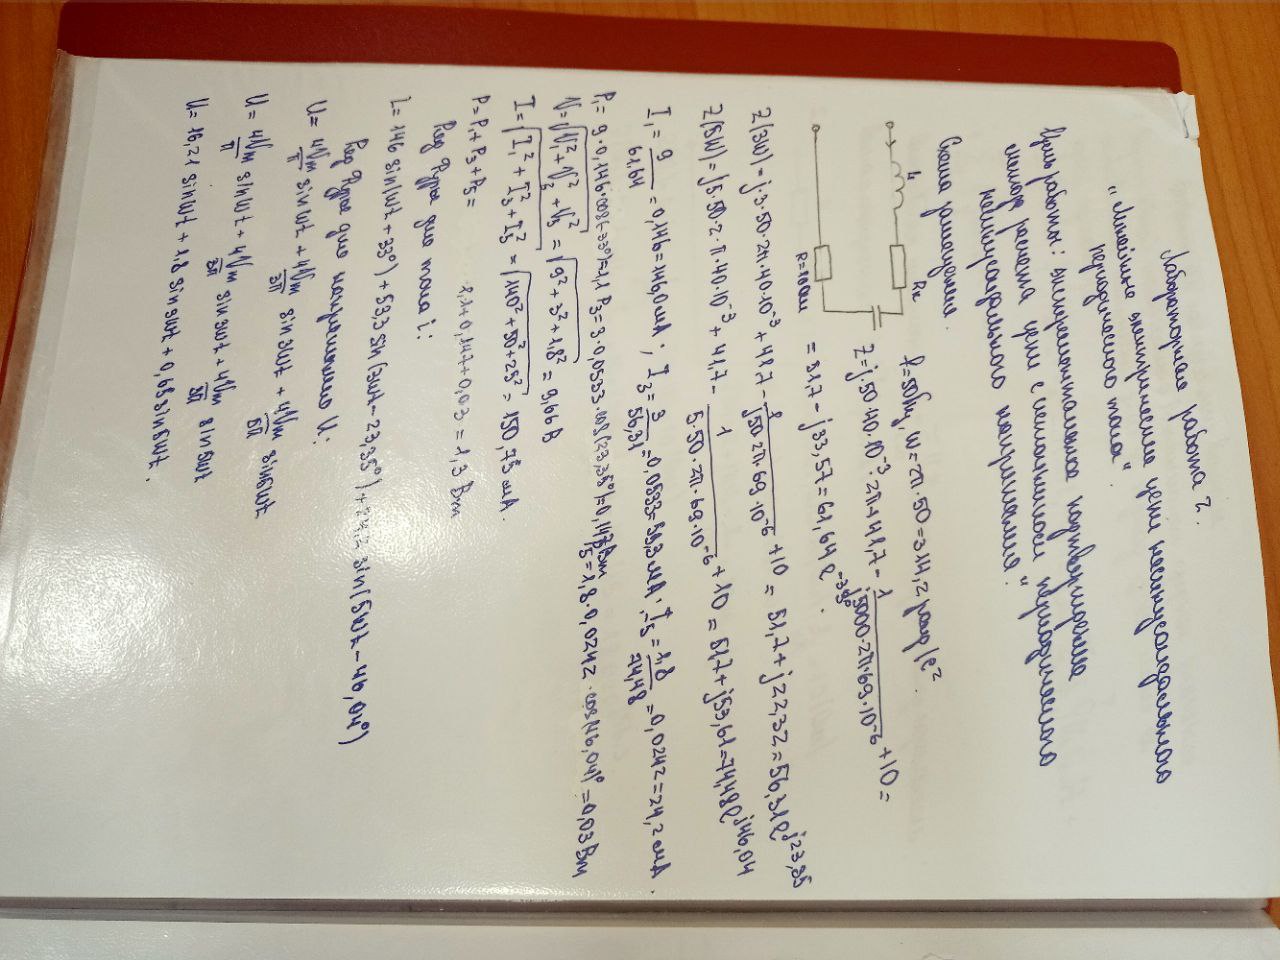 Лабораторная работа 2.
"Линейные электрические цепи несинусоидального
периодического тока".
Цель работы: экспериментальное подтверждение
метода расчета цепи с источником периодического
несинусоидального напряжения."
Схема замещения.
L Rк
f=50Гц, W=2π·50=314,2 рад/с²
Z=j·50·40·10⁻³·2π+41,7-1/(j5000·2π·69·10⁻⁶)+10=
R=10Ом
=51,7-j33,57=61,64e^-33°.
Z(3W)=j·3·50·2π·40·10⁻³+41,7-1/(j50·2π·69·10⁻⁶)+10=51,7+j22,32=56,31e^j23,35
Z(5W)=j5·50·2·π·40·10⁻³+41,7-1/(5·50·2π·69·10⁻⁶)+10=51,7+j53,61=74,48e^j46,04
I₁=9/61,64=0,146=146,0мА; I₃=3/56,31=0,0533=53,3мА; I₅=1,8/74,48=0,0242=24,2мА.
P₁=9·0,146·cos(-33°)=1,1 P₃=3·0,0533·cos(23,35°)=0,147Вт
P₅=1,8·0,0242·cos(46,04)°=0,03Вт
U=√(U₁²+U₃²+U₅²)=√(9²+3²+1,8²)=9,66В
I=√(I₁²+I₃²+I₅²)=√(140²+50²+25²)=150,75мА.
P=P₁+P₃+P₅= 1,1+0,147+0,03=1,3Вт
Ряд Фурье для тока i:
i=146sin(Wt+33°)+53,3sin(3Wt-23,35°)+24,2sin(5Wt-46,04°)
Ряд Фурье для напряжения U:
U=4Um/π sinWt+4Um/3π sin3Wt+4Um/5π sin5Wt
U=4Um/π sinWt+4Um/3π sin3Wt+4Um/5π sin5Wt
U=16,21sinWt+1,8sin3Wt+0,65sin5Wt.